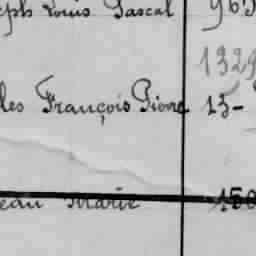 eph Louis Pascal 965
1329
les François Pierre 13-
eau Marie 150